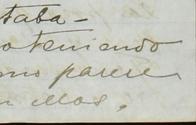 taba-
oteniendo
mo parece
n Mos.